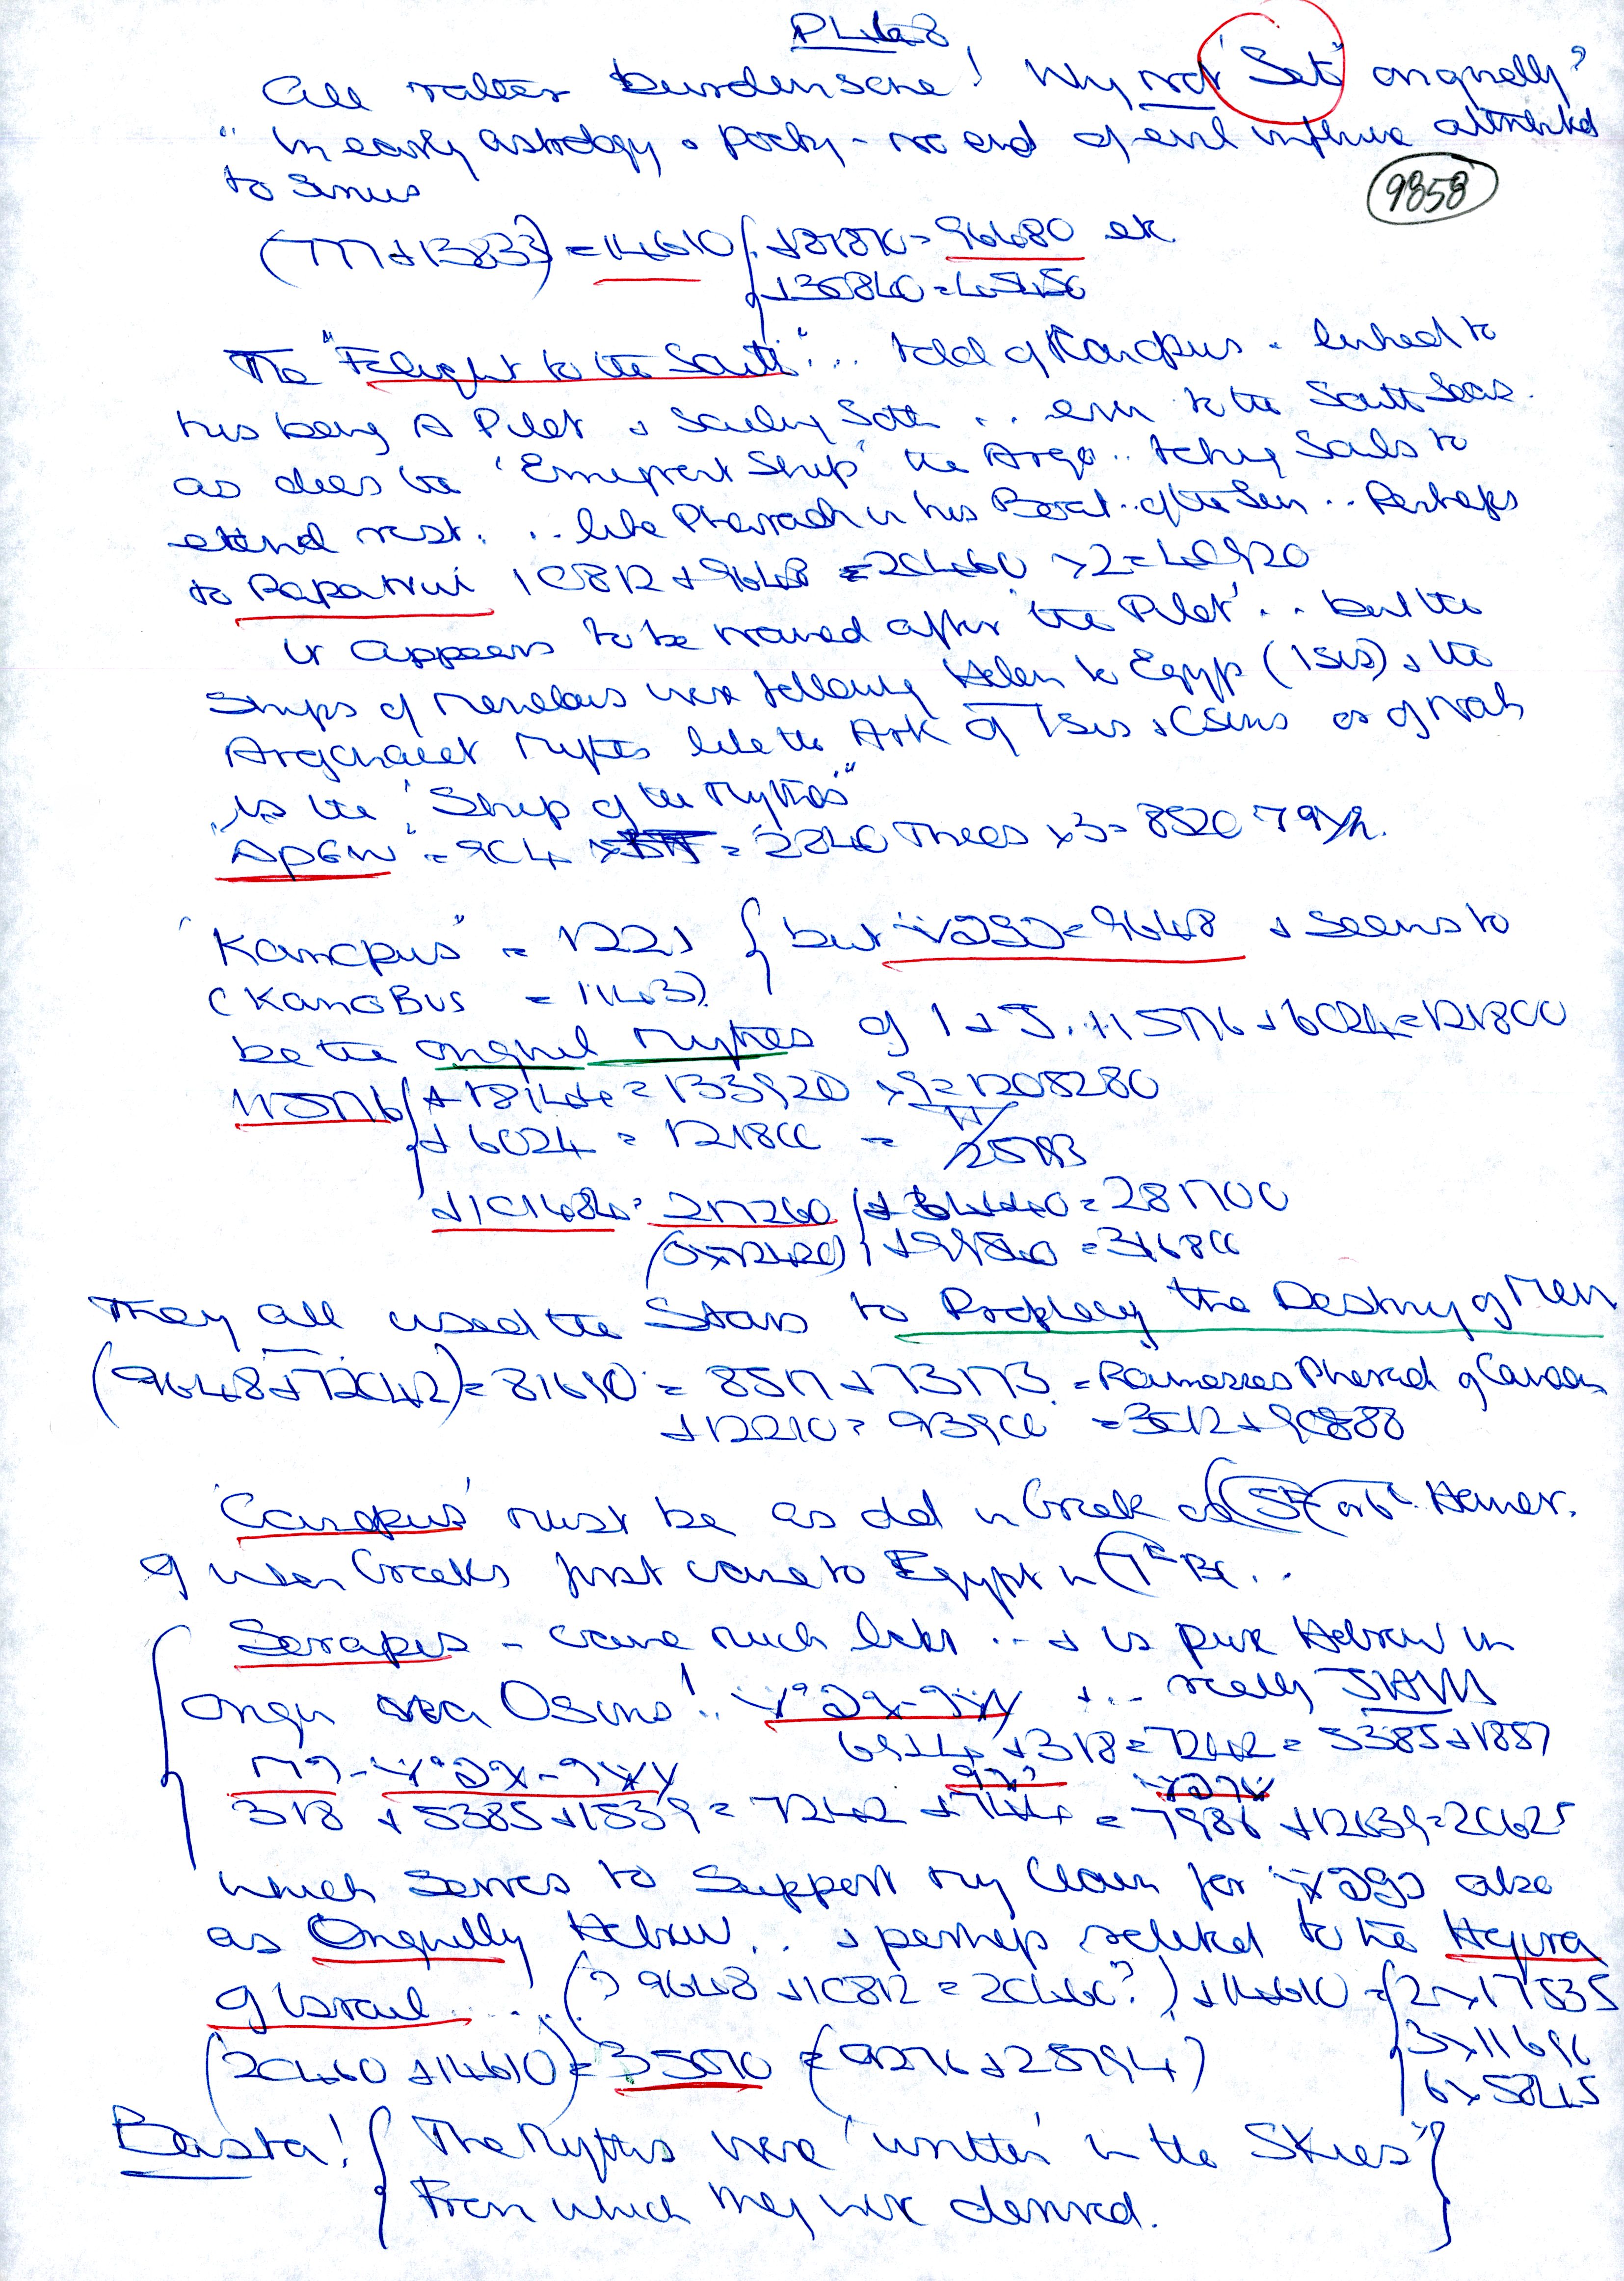 All rather burdensome! Why not 'Set' originally?
"In early astrology & poetry - no end of evil influence attributed
to Sirius
9858
(777+13833) = 14610 { +81870 = 96480 etc
+30840 = 45450
The "Flight to the South" ... told of Kanopus - linked to
his being A Pilot & Sailing South .. even to the South Seas.
as does the 'Emigrant Ship' the Argo .. taking Souls to
eternal rest. .. like Pharaoh in his Boat .. of the Sun .. Perhaps
to Rapa Nui 10812 + 9648 = 20460 ×2 = 40920
it appears to be named after 'the Pilot' .. but the
Ships of Menelaus were following Helen to Egypt (Isis) & the
Argonaut Myths like the Ark of Isis & Osiris or of Noah
is the "Ship of the Mythos"
= 904 = 2840 Threes ×3 = 8520
'Kanopus' = 1221 { but = 9648 & seems to
(KanoBus = 1143)
be the original Mythos of I & J. +115776 + 6024 = 121800
115776 { +18144 = 133920 ×9 = 1205280
+ 6024 = 121800 =
+101484 = 217260 { + 64440 = 281700
= 316800
They all used the Stars to Prophecy the Destiny of Men
(9648+72042) = 81690 = 8517 + 73173 = Ramesses Pharaoh of
+12210 = 93900 = 3012 + 90888
'Canopus' must be as old in Greek as Homer.
of when Greeks first came to Egypt in 7th BC..
Serapis - came much later ... & is pure Hebrew in
origin via Osiris! .. & .. really JHVH
6924 + 318 = 7242 = 5385 + 1857
318 + 5385 + 1539 = 7242 + 744 = 7986 + 12639 = 20625
which serves to support my Claim for also
as Originally Hebrew .. & perhaps related to the Hegira
of Israel .... (? 9648 + 10812 = 20460?) + 14610 = { 2×17535
3×11690
6×5845
(20460 + 14610) = 35070 = (9276 + 25794)
Basta! { The Myths were 'written' in the Skies"
From which they were derived. }